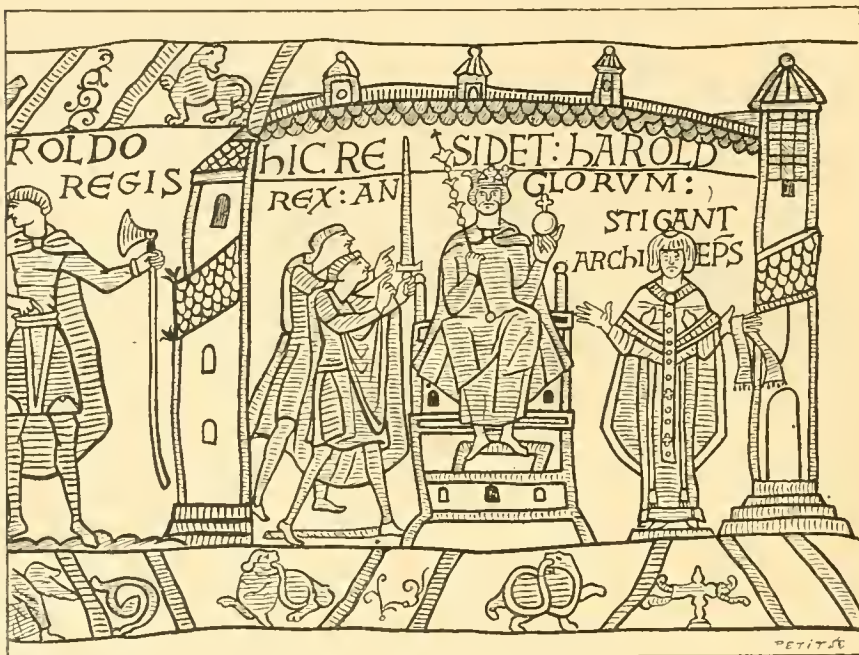 ROLDO
REGIS
hIC RE SIDET: hAROLD
REX: AN GLORVM:
STIGANT
ARCHI EPS
PETIT SC